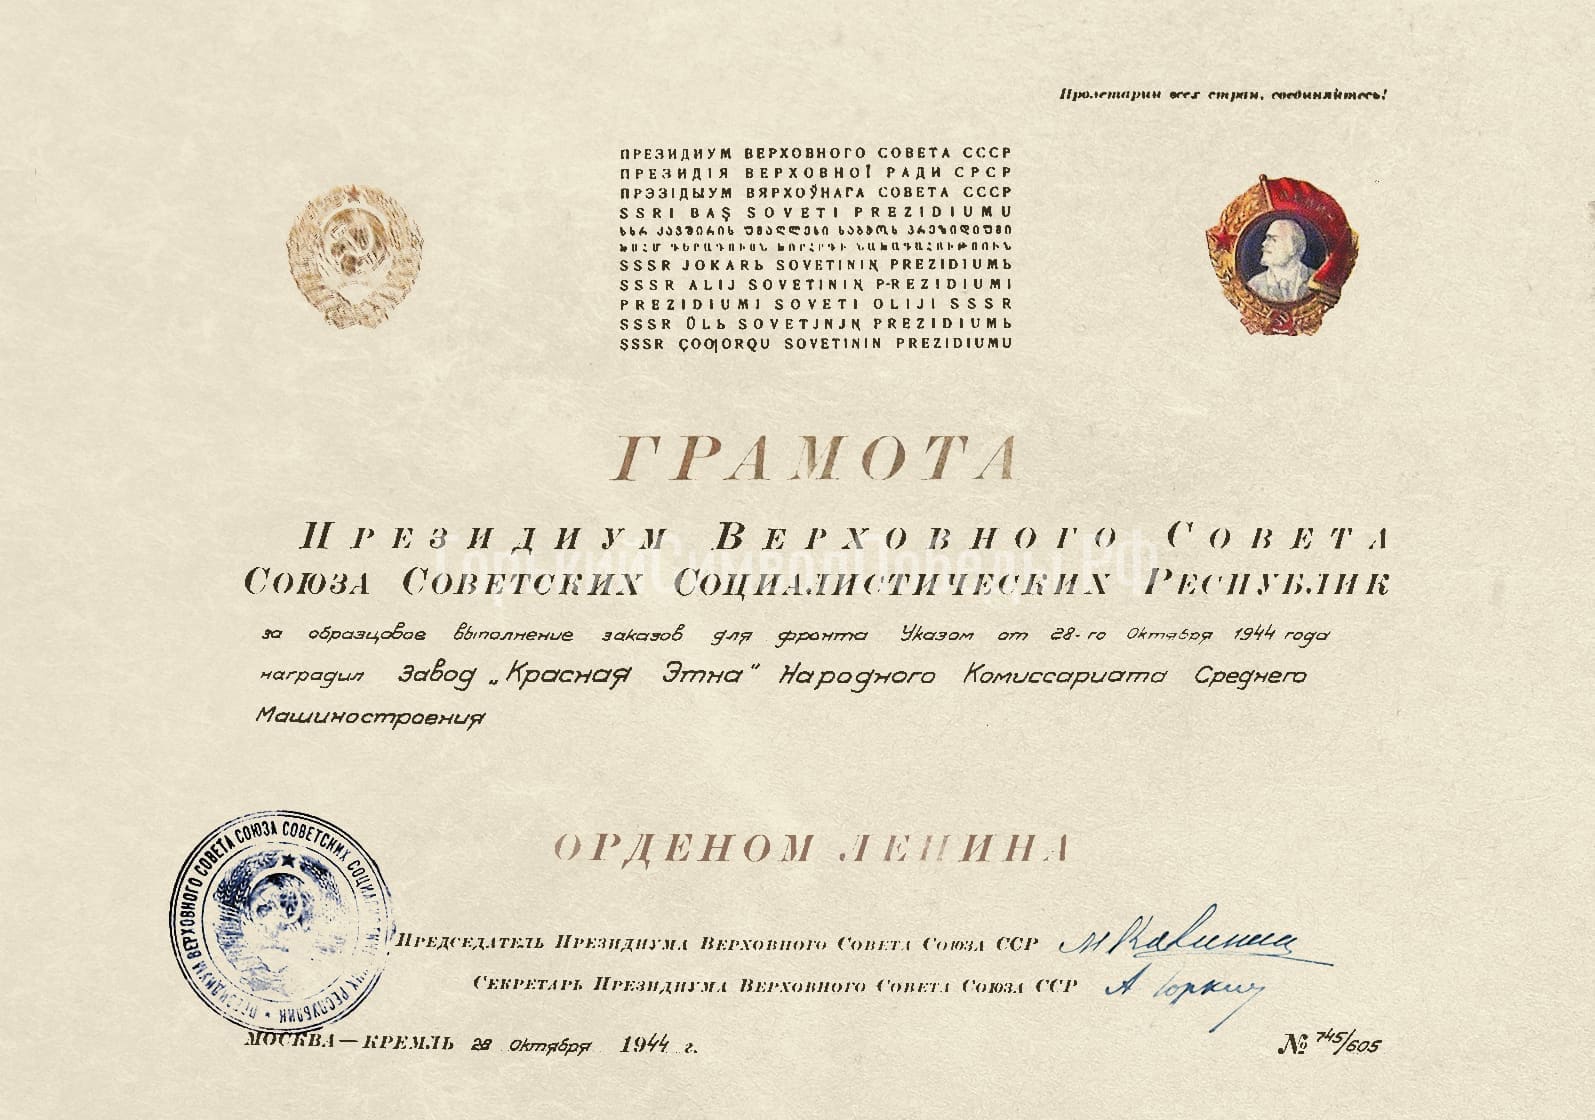 Пролетарии всех стран, соединяйтесь!
ПРЕЗИДИУМ ВЕРХОВНОГО СОВЕТА СССР
ПРЕЗИДІЯ ВЕРХОВНОЇ РАДИ СРСР
ПРЭЗІДЫУМ ВЯРХОЎНАГА СОВЕТА СССР
SSRI BAŞ SOVETI PREZIDIUMU
სსრ კავშირის უმაღლესი საბჭოს პრეზიდიუმი
SSSR JOKARЬ SOVETINIꞐ PREZIDIUMЬ
SSSR ALIJ SOVETININ P-REZIDIUMI
PREZIDIUMI SOVETI OLIJI SSSR
SSSR ÛLЬ SOVETJNJN PREZIDIUMЬ
SSSR ÇOQORQU SOVETININ PREZIDIUMU
ГРАМОТА
Президиум Верховного Совета
Союза Советских Социалистических Республик
за образцовое выполнение заказов для фронта Указом от 28-го Октября 1944 года
наградил Завод „Красная Этна" Народного Комиссариата Среднего
Машиностроения
ОРДЕНОМ ЛЕНИНА
ПРЕЗИДИУМ ВЕРХОВНОГО СОВЕТА СОЮЗА СОВЕТСКИХ СОЦИАЛИСТИЧЕСКИХ РЕСПУБЛИК
Председатель Президиума Верховного Совета Союза ССР М Калинин
Секретарь Президиума Верховного Совета Союза ССР А Горкин
МОСКВА—КРЕМЛЬ 28 Октября 1944 г.
№ 745/605
ГорькийСимволПобеды.РФ